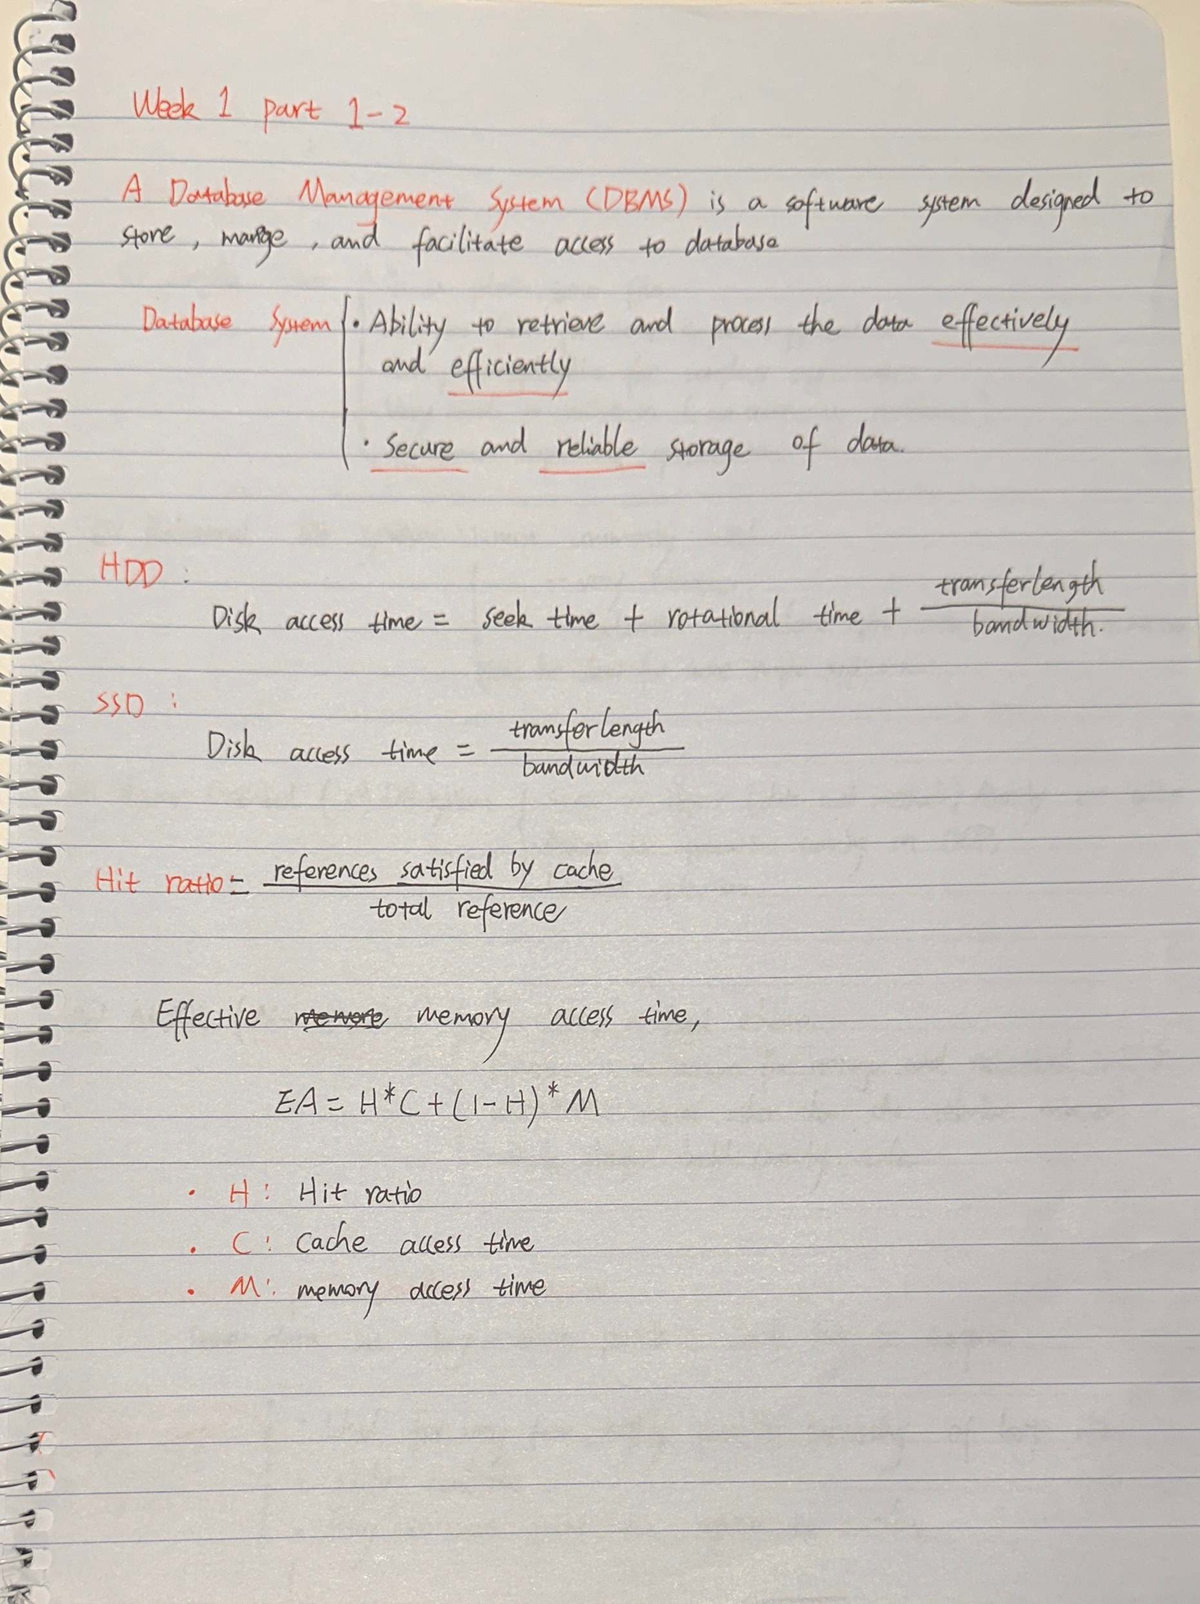 Week 1 part 1-2
A Database Management System (DBMS) is a software system designed to
store, mange, and facilitate access to database
Database System • Ability to retrieve and process the data effectively
and efficiently
• Secure and reliable storage of data.
HDD:
Disk access time = seek time + rotational time + transferlength / bandwidth.
SSD:
Disk access time = transferlength / bandwidth
Hit ratio = references satisfied by cache / total reference
Effective memory access time,
EA = H*C+(1-H)*M
• H: Hit ratio
• C: Cache access time
• M: memory access time